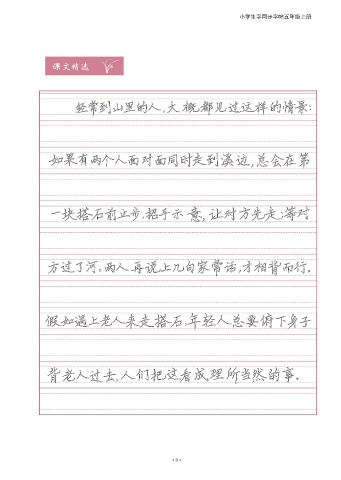 小学生字同步字帖五年级上册
课文精选
经常到山里的人,大概都见过这样的情景:
如果有两个人面对面同时走到溪边,总会在第
一块搭石前止步,招手示意,让对方先走;等对
方过了河,两人再说上几句家常话,才相背而行。
假如遇上老人来走搭石,年轻人总要俯下身子
背老人过去,人们把这看成理所当然的事。